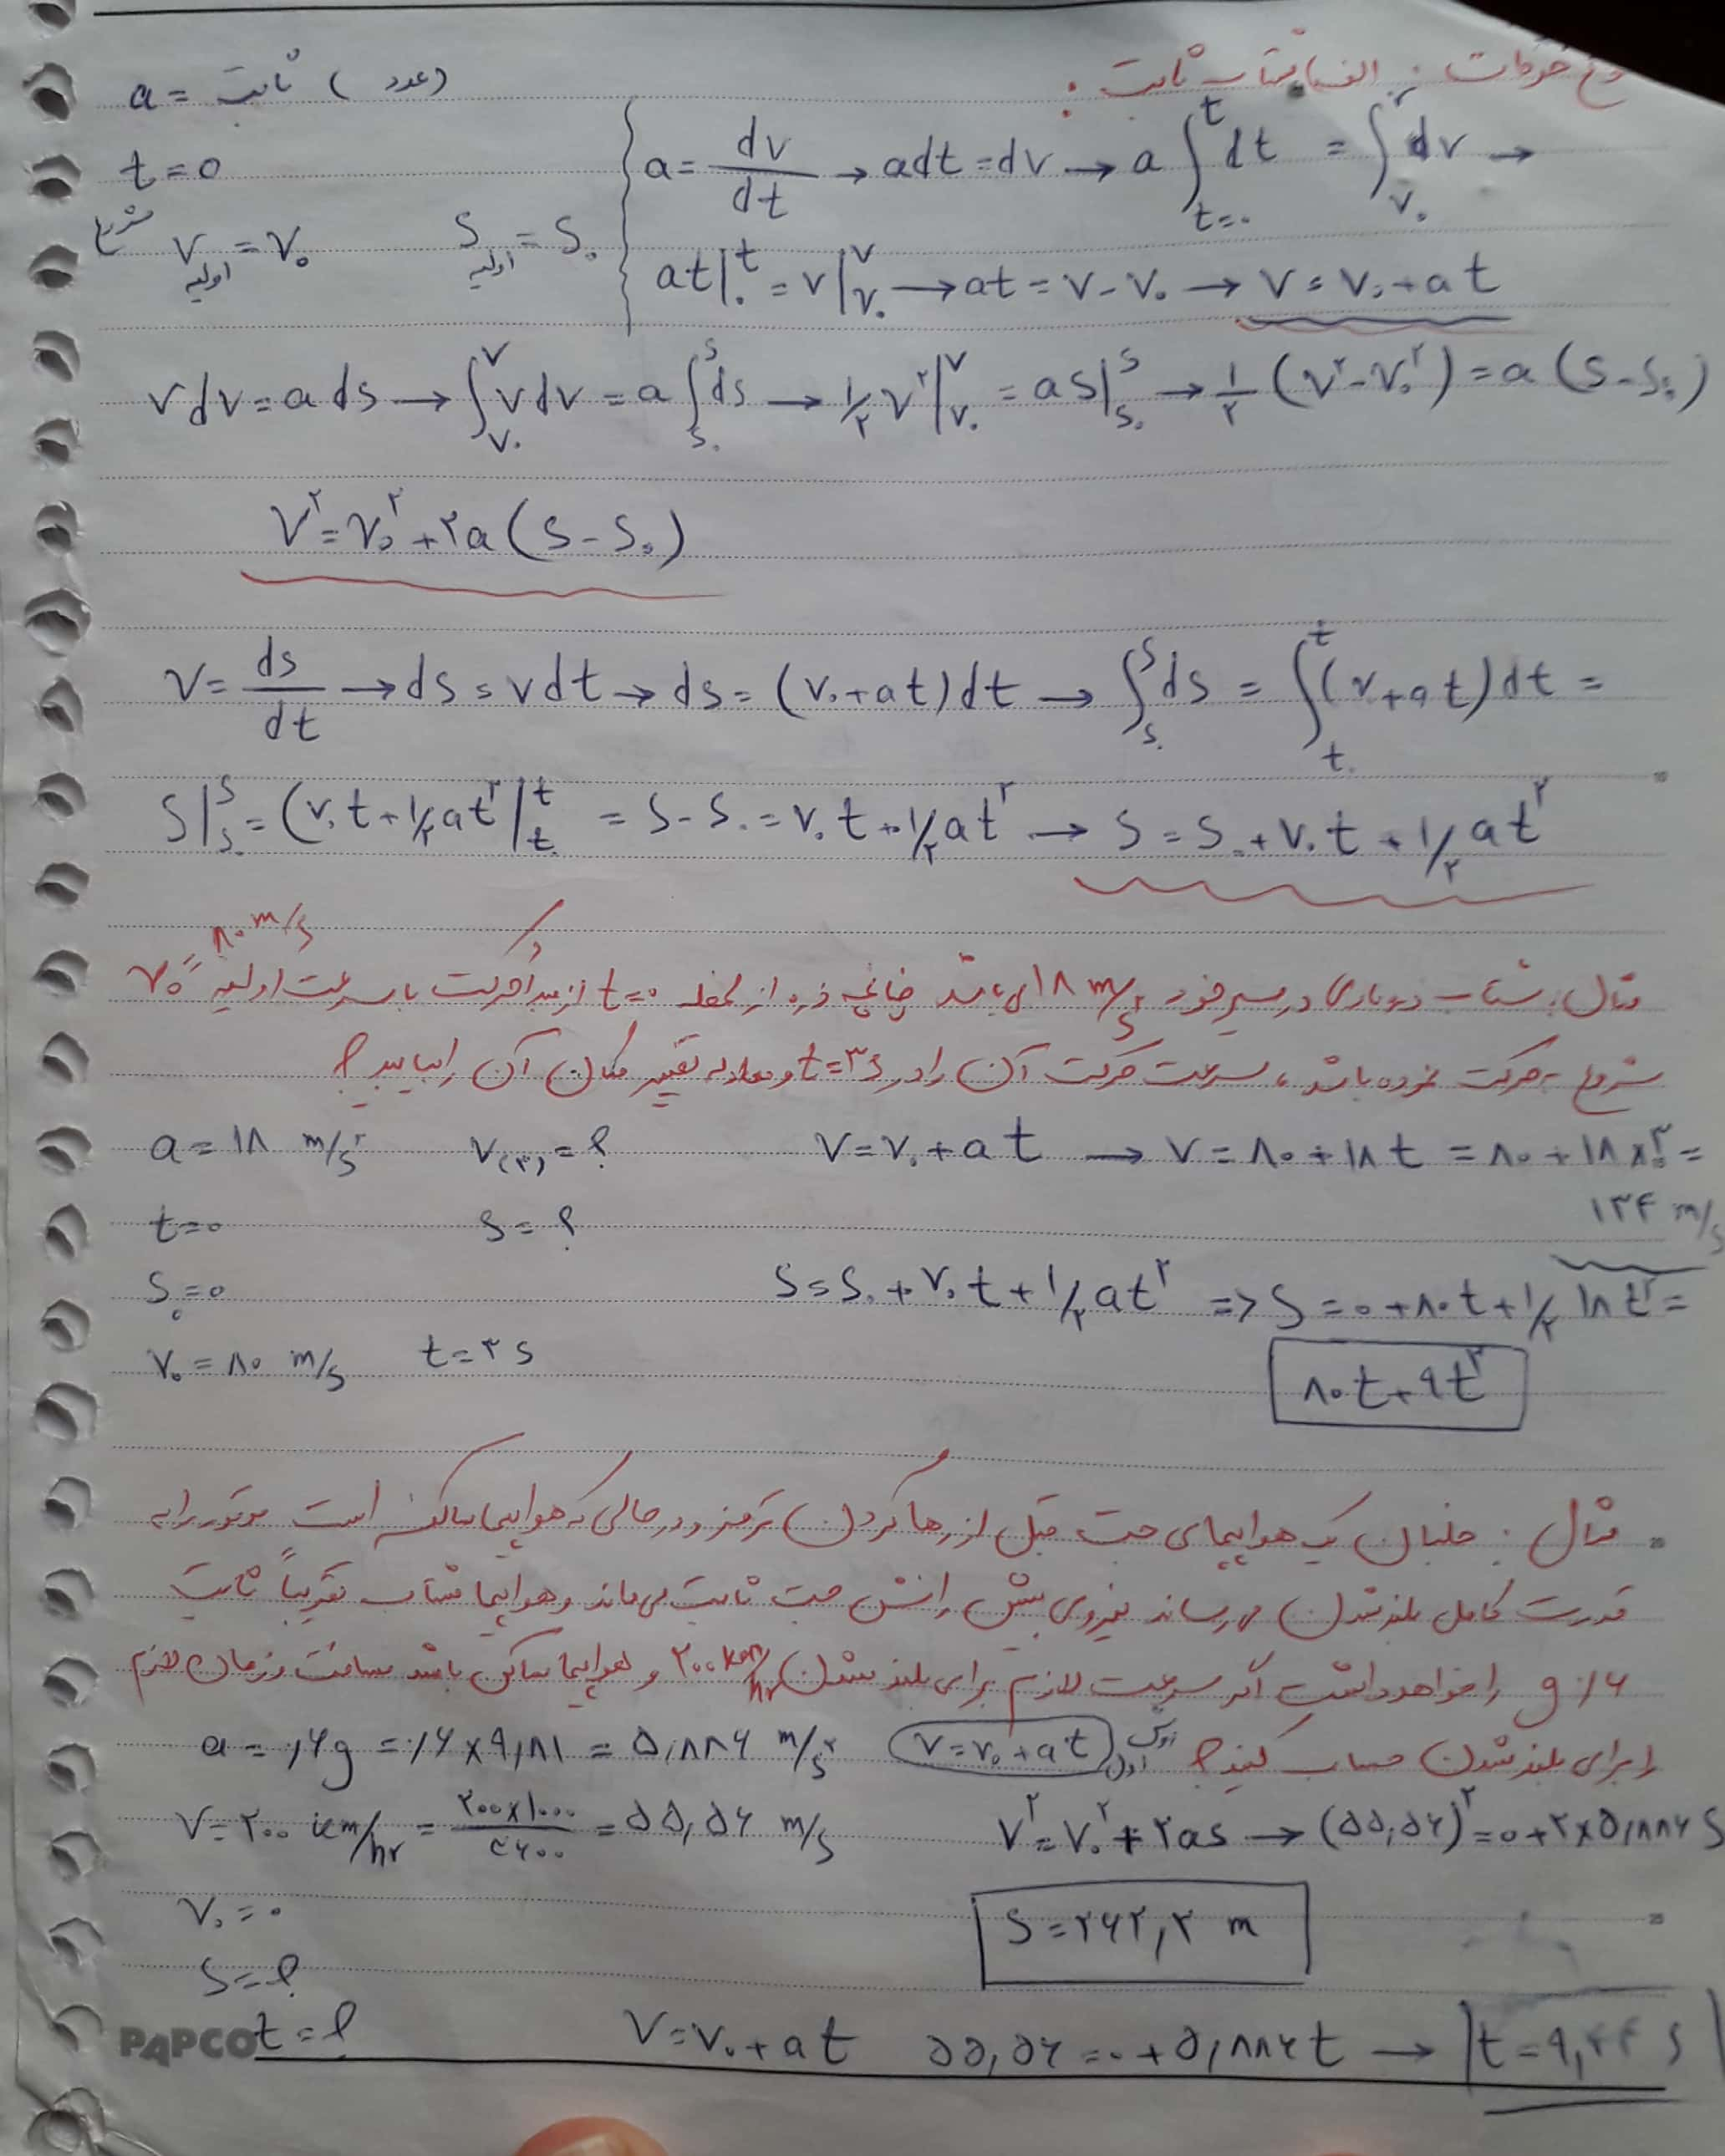 نوع حرکات : الف) شتاب ثابت :
a = ثابت (عدد)
t = 0
شروع V اولیه = V₀ S اولیه = S₀
a = dv/dt → adt = dv → a ∫_{t=۰}^{t} dt = ∫_{V₀}^{v} dv →
at|₀^t = v|_{V₀}^{V} → at = V - V₀ → V = V₀ + at
vdv = a ds → ∫_{V₀}^{V} vdv = a ∫_{S₀}^{S} ds → ۱/۲ V^۲|_{V₀}^{V} = aS|_{S₀}^{S} → ۱/۲ (V^۲ - V₀^۲) = a (S - S₀)
V^۲ = V₀^۲ + ۲a (S - S₀)
V = ds/dt → ds = vdt → ds = (V₀ + at)dt → ∫_{S₀}^{S} ds = ∫_{t₀}^{t} (v + at)dt =
S|_{S₀}^{S} = (V₀t + ۱/۲ at^۲|_{t₀}^{t} = S - S₀ = V₀t + ۱/۲ at^۲ → S = S₀ + V₀t + ۱/۲ at^۲
مثال : شتاب ذره‌ای در مسیر خود ۱۸ m/s^۲ می باشد چنانچه ذره از لحظه t=۰ از مبدا حرکت با سرعت اولیه V₀ = ۸۰ m/s
شروع به حرکت نموده باشد ، سرعت حرکت آن را در t=۳s و معادله تغییر مکان آن را بیابید ؟
a = ۱۸ m/s^۲ V(۳) = ؟ V = V₀ + at → V = ۸۰ + ۱۸t = ۸۰ + ۱۸×۳ =
۱۳۴ m/s
t = ۰ S = ؟
S₀ = ۰ S = S₀ + V₀t + ۱/۲ at^۲ => S = ۰ + ۸۰t + ۱/۲ ۱۸t^۲ =
V₀ = ۸۰ m/s t = ۳ s
۸۰t + ۹t^۲
مثال : خلبان یک هواپیمای جت قبل از رها کردن ترمز و در حالی که هواپیما ساکن است موتور را به
قدرت کامل بلند شدن می رساند نیروی پیش رانش جت ثابت می ماند و هواپیما شتاب تقریباً ثابت
۰/۶ g را خواهد داشت اگر سرعت لازم برای بلند شدن ۲۰۰ km/hr و هواپیما ساکن باشد مسافت و زمان لازم
را برای بلند شدن حساب کنید ؟
a = ۰,۶g = ۰,۶ × ۹,۸۱ = ۵,۸۸۶ m/s^۲ V = V₀ + at اول
V = ۲۰۰ km/hr = ۲۰۰×۱۰۰۰/۳۶۰۰ = ۵۵,۵۶ m/s V^۲ = V₀^۲ + ۲as → (۵۵,۵۶)^۲ = ۰ + ۲×۵,۸۸۶ S
V₀ = ۰
S = ۲۶۲,۲ m
S = ؟
t = ؟ V = V₀ + at ۵۵,۵۶ = ۰ + ۵,۸۸۶t → t = ۹,۴۴ s
PAPCO